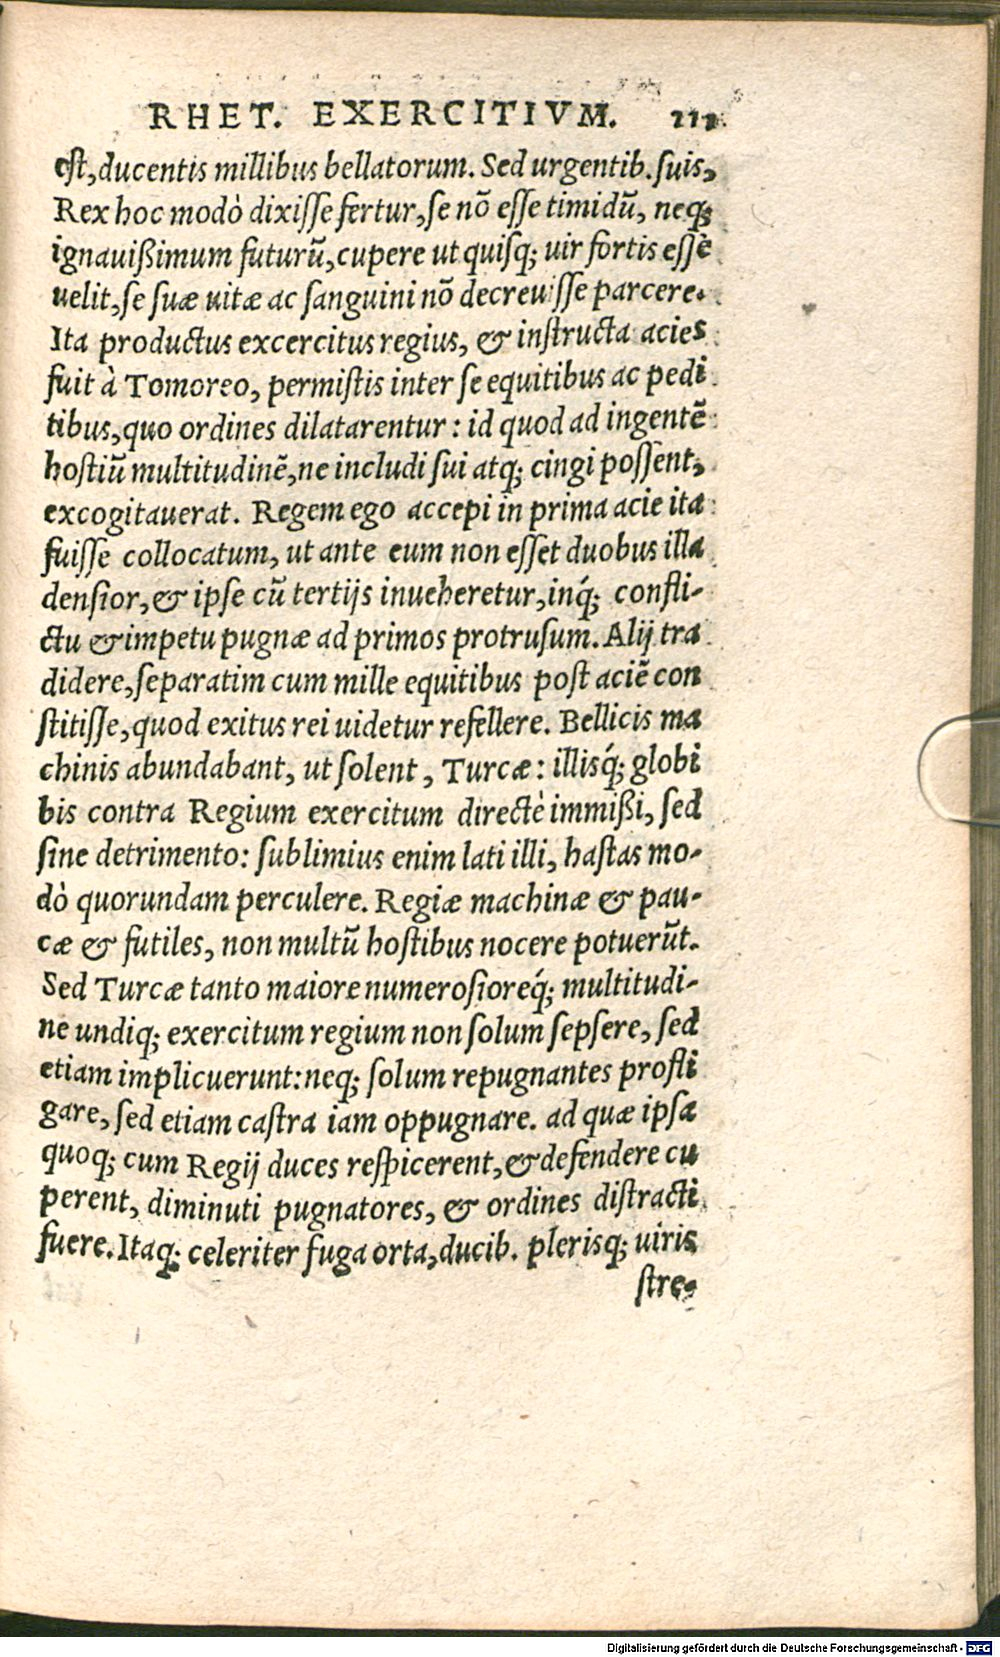 RHET. EXERCITIVM. 111.
eſt, ducentis millibus bellatorum. Sed urgentib. ſuis,
Rex hoc modò dixiſſe fertur, ſe nō eſſe timidū, neq;
ignauißimum futurū, cupere ut quiſq; uir fortis eſſe
uelit, ſe ſuæ uitæ ac ſanguini nō decreuiſſe parcere.
Ita productus excercitus regius, & inſtructa acies
fuit à Tomoreo, permiſtis inter ſe equitibus ac pedi
tibus, quo ordines dilatarentur: id quod ad ingentē
hoſtiū multitudinē, ne includi ſui atq; cingi poſſent,
excogitauerat. Regem ego accepi in prima acie ita
fuiſſe collocatum, ut ante eum non eſſet duobus illa
denſior, & ipſe cū tertijs inueheretur, inq́; confli-
ctu & impetu pugnæ ad primos protruſum. Alij tra
didere, ſeparatim cum mille equitibus poſt aciē con
ſtitiſſe, quod exitus rei uidetur refellere. Bellicis ma
chinis abundabant, ut ſolent, Turcæ: illisq́; globi
bis contra Regium exercitum directè immißi, ſed
ſine detrimento: ſublimius enim lati illi, haſtas mo-
dò quorundam perculere. Regiæ machinæ & pau-
cæ & futiles, non multū hoſtibus nocere potuerūt.
Sed Turcæ tanto maiore numeroſioreq́; multitudi-
ne undiq; exercitum regium non ſolum ſepſere, ſed
etiam implicuerunt: neq; ſolum repugnantes profli
gare, ſed etiam caſtra iam oppugnare. ad quæ ipſa
quoq; cum Regij duces reſpicerent, & defendere cu
perent, diminuti pugnatores, & ordines diſtracti
fuere. Itaq; celeriter fuga orta, ducib. plerisq; uiris
ſtre-
Digitalisierung gefördert durch die Deutsche Forschungsgemeinschaft - DFG